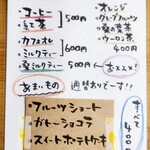 コーヒー
紅茶
500円
カフェオレ
ミルクティー
600円
桑ミルクティー
500円
オレンジ
グレープフルーツ
桑の葉茶
ウーロン茶
400円
あまいもの
週替わりでーす!!
フルーツショート
ガトーショコラ
スイートポテトケーキ
すべて
400